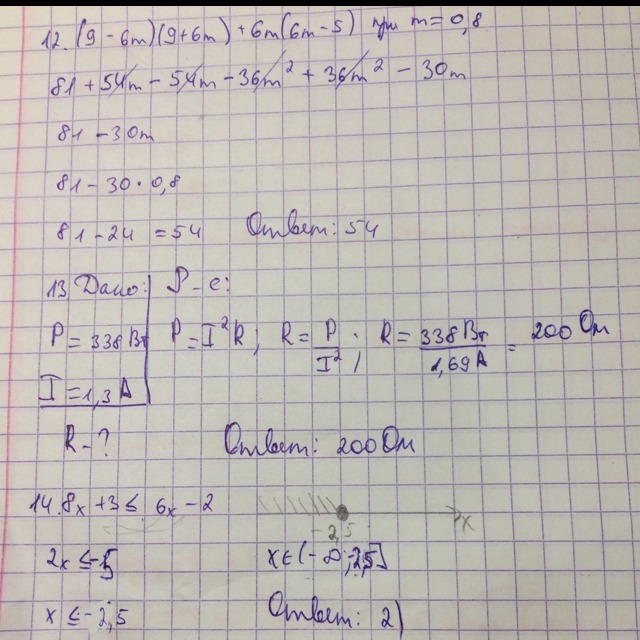 12. (9 - 6m)(9+6m) + 6m(6m - 5) при m = 0,8
81 + 54m - 54m - 36m² + 36m² - 30m
81 - 30m
81 - 30 · 0,8
81 - 24 = 54 Ответ: 54
13 Дано: Р-е:
P = 338 Вт P = I²R; R = P/I²; R = 338 Вт/1,69 А = 200 Ом
I = 1,3 А
R - ? Ответ: 200 Ом
14. 8x + 3 ≤ 6x - 2
-2,5 x
2x ≤ -5 x ∈ (-∞; -2,5]
x ≤ -2,5 Ответ: 2)